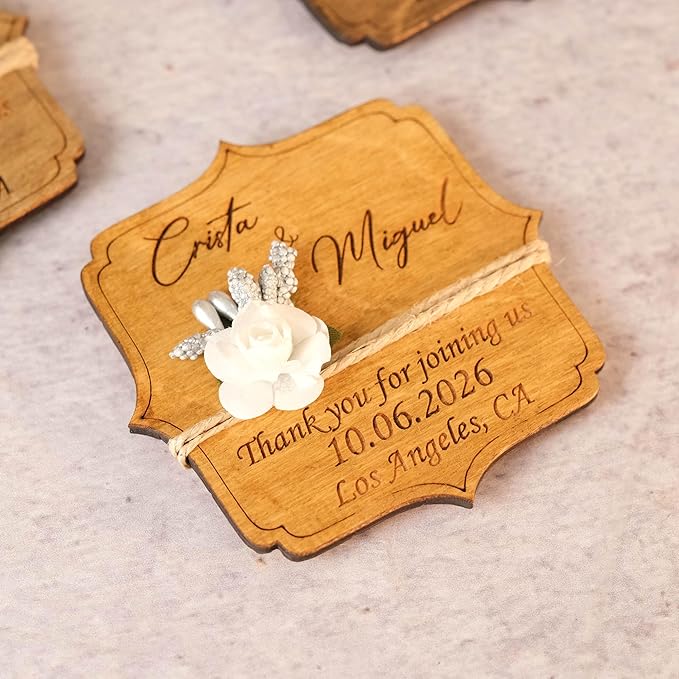 Crista & Miguel
Thank you for joining us
10.06.2026
Los Angeles, CA